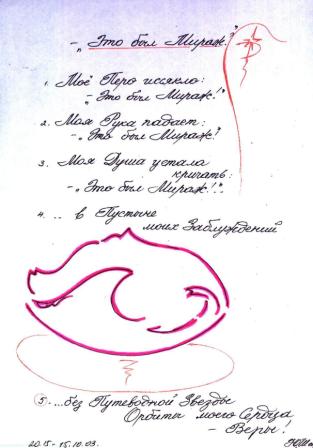 - „Это был Мираж?"
1. Моё Перо иссякло:
- „Это был Мираж!"
2. Моя Рука падает:
- „Это был Мираж?
3. Моя Душа устала
кричать:
- „Это был Мираж!".
4. .. в Пустыне
моих Заблуждений
5. ...без Путеводной Звезды
Орбиты моего Сердца
- Веры!
20.15 - 15.10.03.